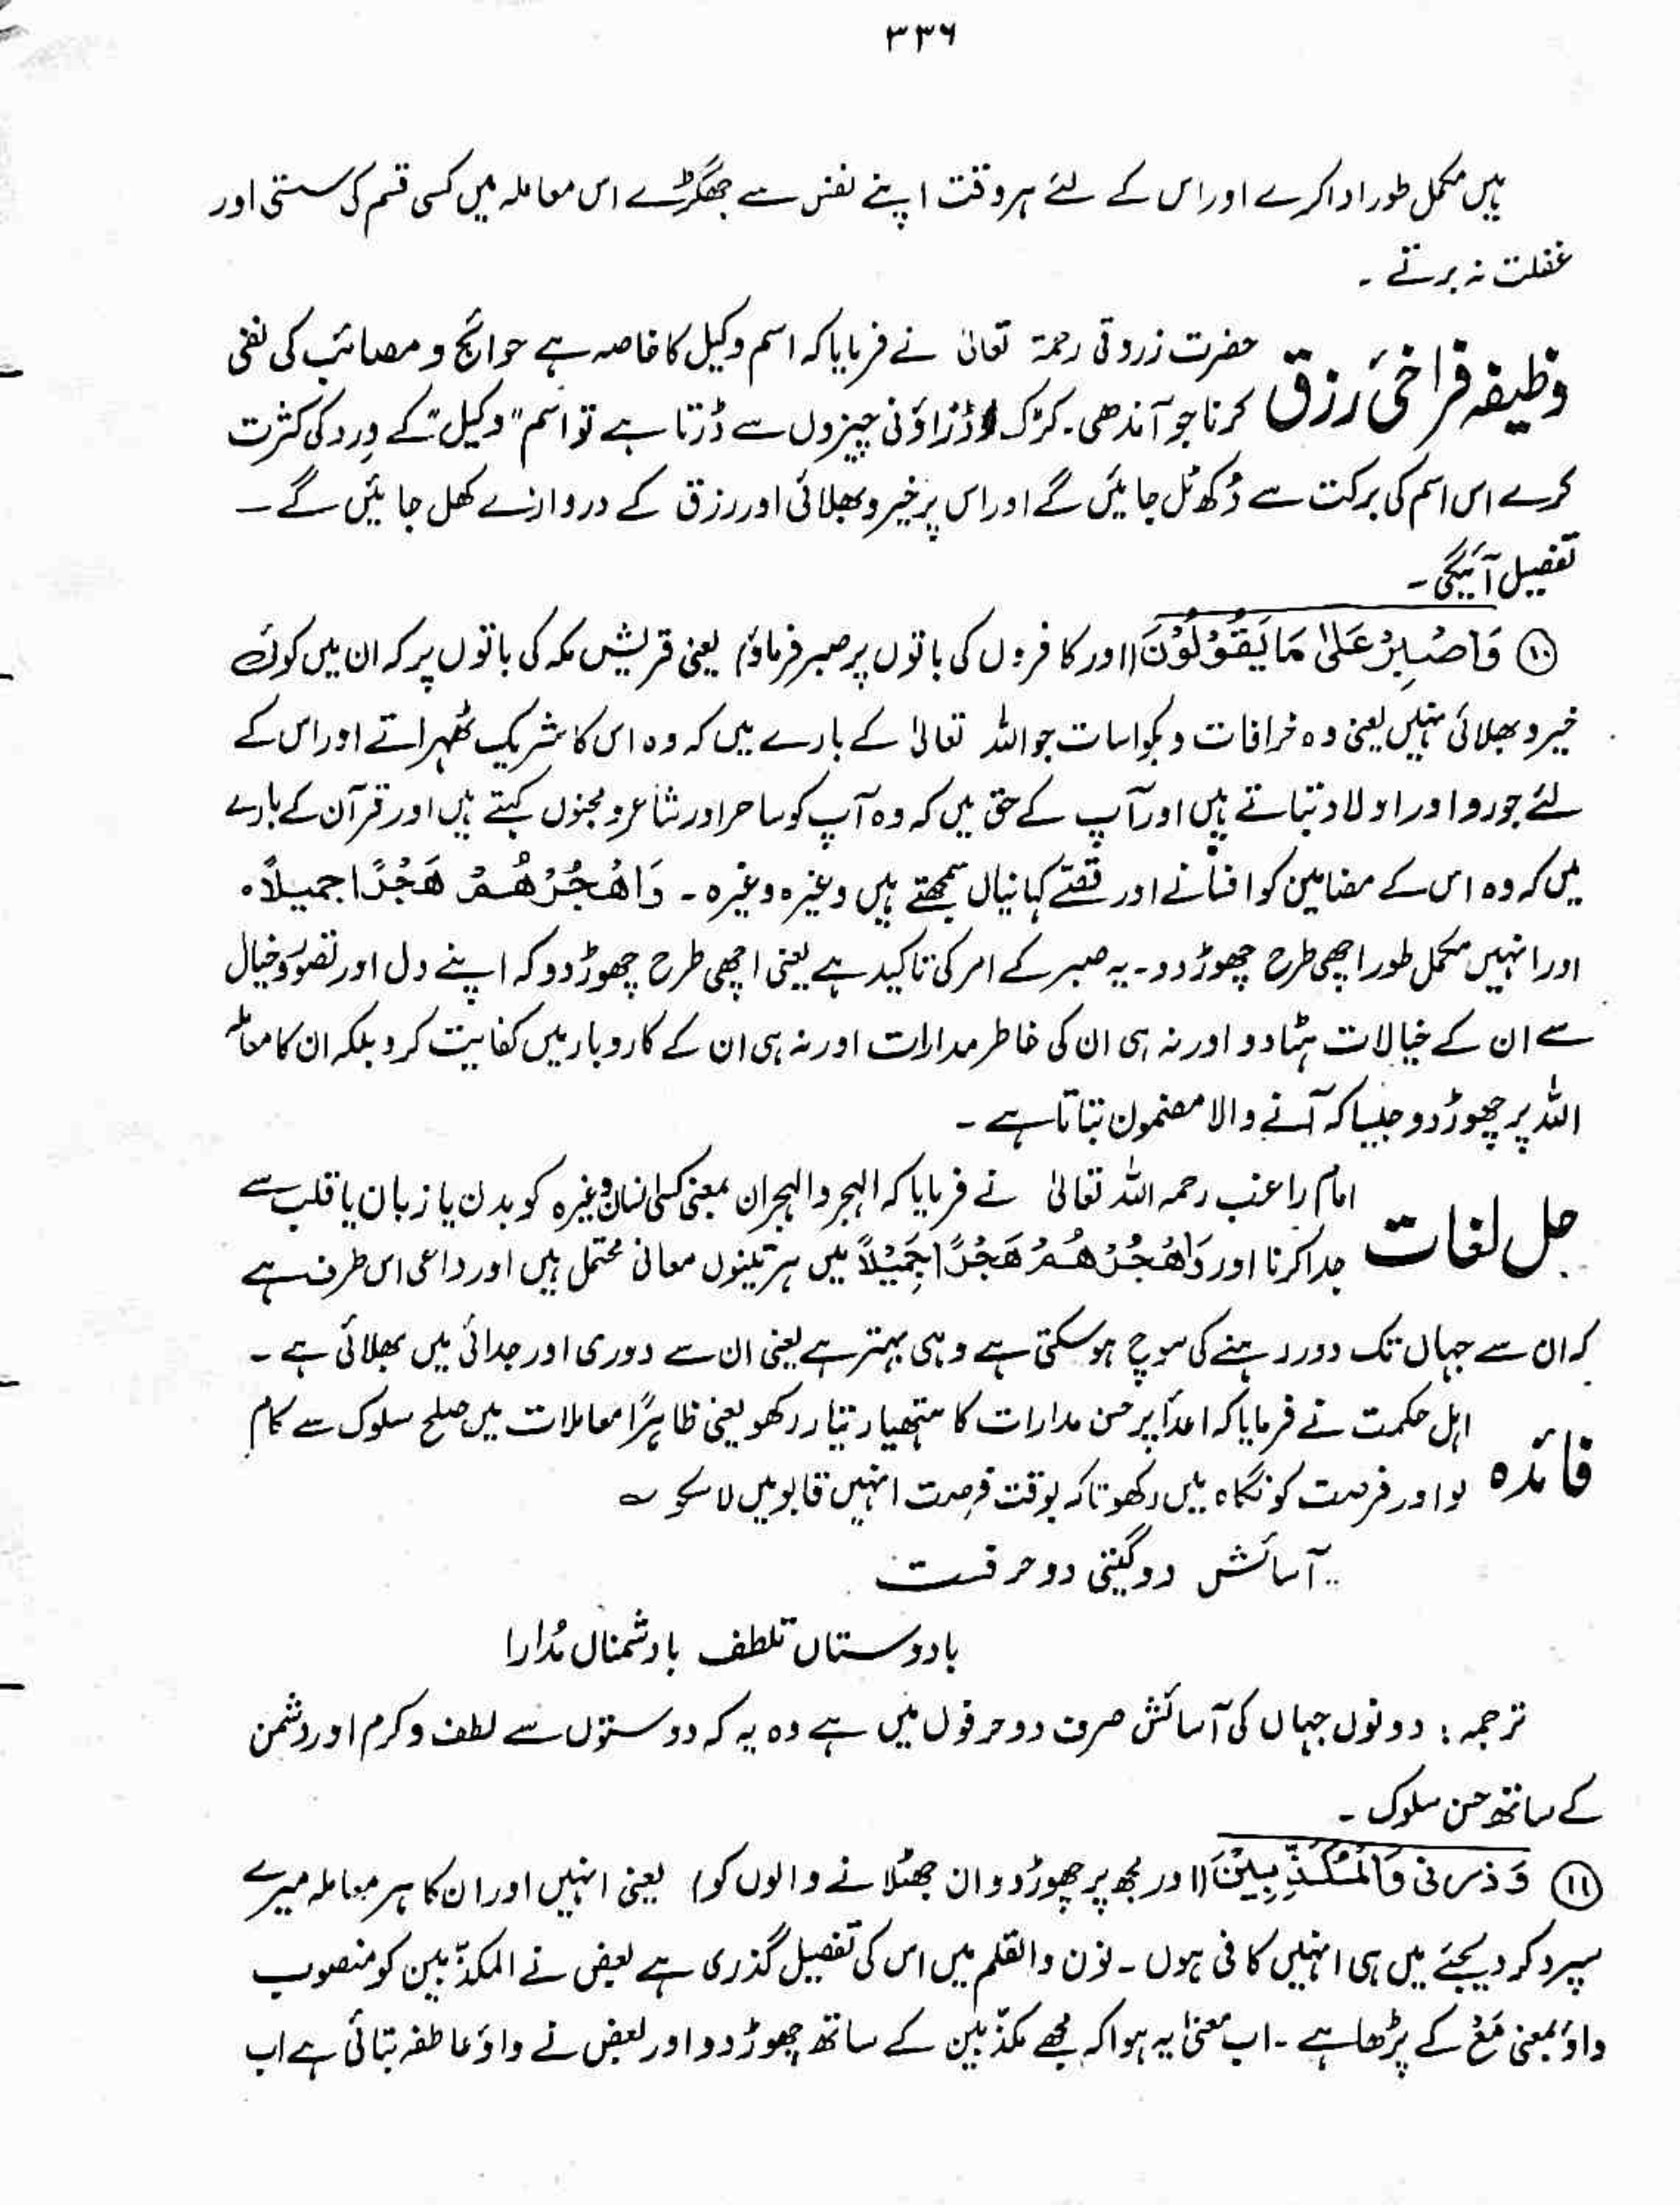 ۳۳۶
ہیں مکمل طور ادا کرے اور اس کے لئے ہر وقت اپنے نفس سے جھگڑے اس معاملہ میں کسی قسم کی سستی اور
غفلت نہ برتے ۔
وظیفہ فراخیٔ رزق حضرت زروقی رحمۃ تعالیٰ نے فرمایا کہ اسم وکیل کا خاصہ ہے حوائج و مصائب کی نفی
کرنا جو آندھی ۔ کڑک اور ڈراؤنی چیزوں سے ڈرتا ہے تو اسم "وکیل" کے وِرد کی کثرت
کرے اس اسم کی برکت سے دُکھ ٹل جائیں گے اور اس پر خیر و بھلائی اور رزق کے دروازے کھل جائیں گے ۔
تفصیل آئیگی ۔
⑩ وَاصْبِرْ عَلیٰ مَا یَقُوْلُوْنَ (اور کافروں کی باتوں پر صبر فرماؤ) یعنی قریش مکہ کی باتوں پر کہ ان میں کوئی
خیر و بھلائی نہیں یعنی وہ خرافات و بکواسات جو اللہ تعالیٰ کے بارے میں کہ وہ اس کا شریک ٹھہراتے اور اس کے
لئے جورو اور اولاد بتاتے ہیں اور آپ کے حق میں کہ وہ آپ کو ساحر اور شاعر و مجنوں کہتے ہیں اور قرآن کے بارے
میں کہ وہ اس کے مضامین کو افسانے اور قصّے کہانیاں سمجھتے ہیں وغیرہ وغیرہ ۔ وَاهْجُرْهُمْ هَجْرًا جمیلاً ۰
اور انہیں مکمل طور اچھی طرح چھوڑ دو ۔ یہ صبر کے امر کی تاکید ہے یعنی اچھی طرح چھوڑ دو کہ اپنے دل اور تصوّر و خیال
سے ان کے خیالات ہٹا دو اور نہ ہی ان کی خاطر مدارات اور نہ ہی ان کے کاروبار میں کفایت کرو بلکہ ان کا معاملہ
اللہ پر چھوڑ دو جیسا کہ آنے والا مضمون بتاتا ہے ۔
حل لغات امام راغب رحمہ اللہ تعالیٰ نے فرمایا کہ الہجر والہجران بمعنی کسی انسان وغیرہ کو بدن یا زبان یا قلب سے
جدا کرنا اور وَاهْجُرْهُمْ هَجْرًا جَمِیْلاً میں ہر تینوں معانی محتمل ہیں اور داعی اس طرف ہے
کہ ان سے جہاں تک دور رہنے کی سوچ ہو سکتی ہے وہی بہتر ہے یعنی ان سے دوری اور جدائی میں بھلائی ہے ۔
فائدہ اہل حکمت نے فرمایا کہ اعدأ پر حسن مدارات کا ہتھیار تیار رکھو یعنی ظاہرًا معاملات میں صلح سلوک سے کام
لو اور فرصت کو نگاہ میں رکھو تاکہ بوقت فرصت انہیں قابو میں لا سکو ؎
آسائش دو گیتی دو حرفست
با دوستاں تلطف با دشمناں مُدارا
ترجمہ : دونوں جہاں کی آسائش صرف دو حرفوں میں ہے وہ یہ کہ دوستوں سے لطف و کرم اور دشمن
کے ساتھ حسن سلوک ۔
⑪ وَذرنی وَالْمُکَذِّبِیْنَ (اور مجھ پر چھوڑ دو ان جھٹلانے والوں کو) یعنی انہیں اور ان کا ہر معاملہ میرے
سپرد کر دیجئے میں ہی انہیں کافی ہوں ۔ نون والقلم میں اس کی تفصیل گذری ہے بعض نے المکذّبین کو منصوب
واؤ بمعنی مَعْ کے پڑھا ہے ۔ اب معنیٰ یہ ہوا کہ مجھے مکذّبین کے ساتھ چھوڑ دو اور بعض نے واؤ عاطفہ بتائی ہے اب